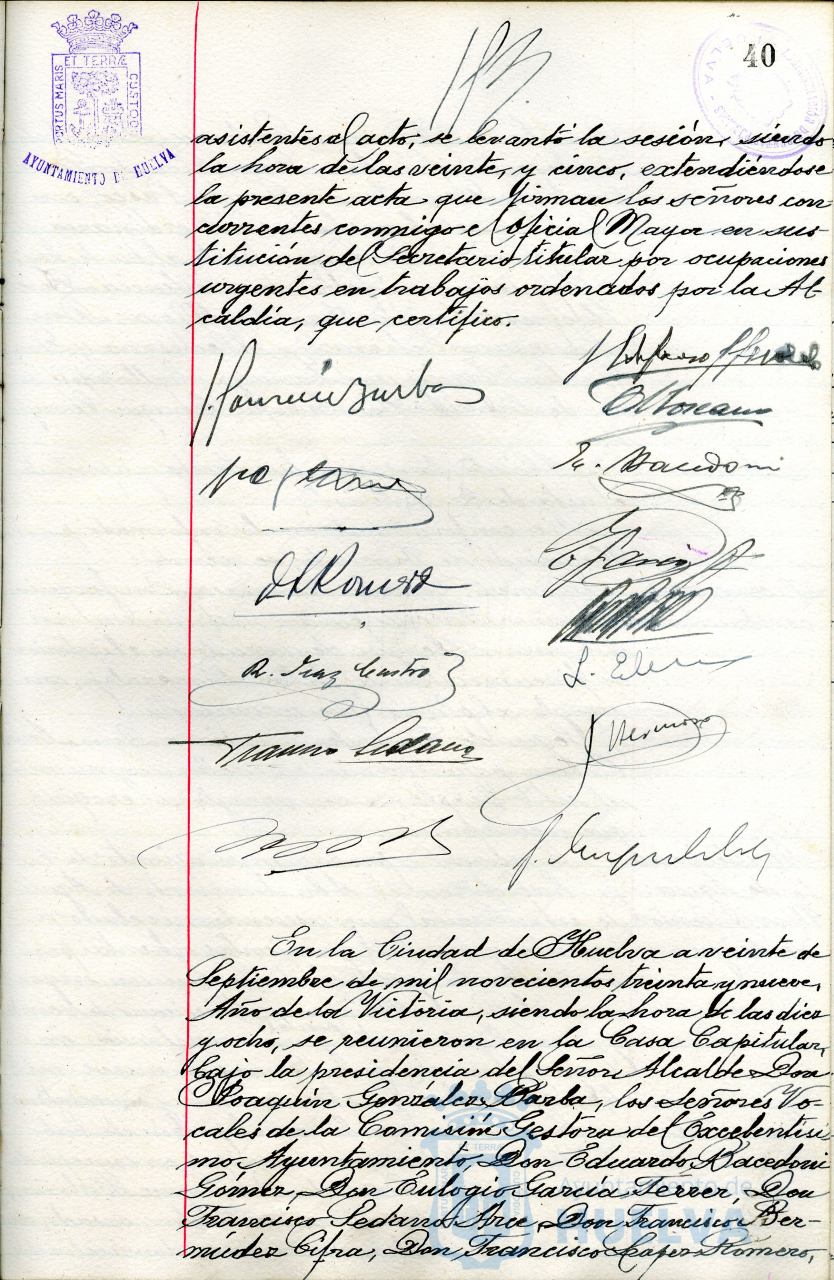 40
PORTUS MARIS ET TERRÆ CUSTODI
AYUNTAMIENTO DE HUELVA
asistentes al acto, se levantó la sesión, siendo
la hora de las veinte, y cinco, extendiéndose
la presente acta que firman los señores con-
currentes conmigo el Oficial Mayor en sus-
titución del Secretario titular por ocupaciones
urgentes en trabajos ordenados por la Al-
caldía, que certifico.
R. Diaz Castro
J. Hermoso
En la Ciudad de Huelva a veinte de
Septiembre de mil novecientos treinta y nueve,
Año de la Victoria, siendo la hora de las diez
y ocho, se reunieron en la Casa Capitular,
bajo la presidencia del Señor Alcalde Don
Joaquín González Barba, los señores Vo-
cales de la Comisión Gestora del Excelentísi-
mo Ayuntamiento Don Eduardo Macedoni
Gómez, Don Eulogio García Ferrer, Don
Francisco Sedano Arce, Don Francisco Ber-
múdez Cifra, Don Francisco Romero,
Ayuntamiento de
HUELVA